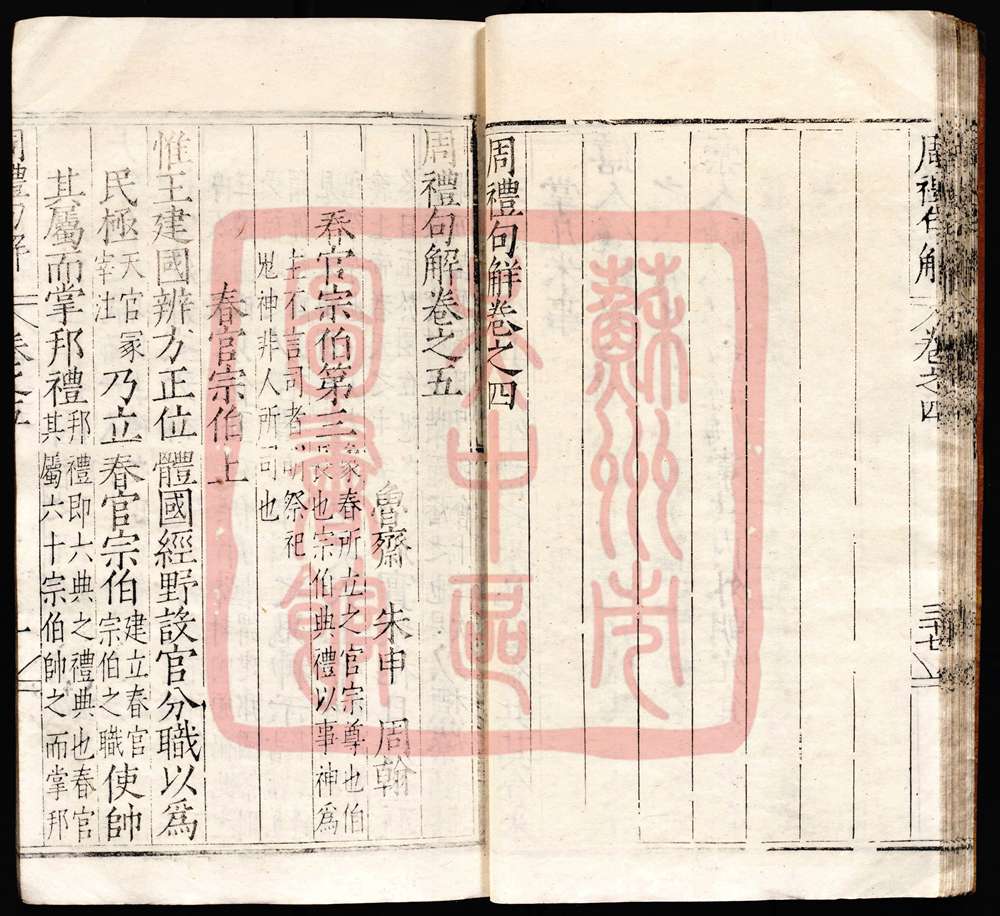 周禮句解 卷之四 三十七
周禮句解卷之四
周禮句解卷之五
魯齋 朱申 周翰
春官宗伯第三 象春所立之官宗尊也伯
長也宗伯典禮以事神爲
主不言司者明祭祀
鬼神非人所司也
春官宗伯上
惟王建國辨方正位體國經野設官分職以爲
民極 天官冢宰注 乃立春官宗伯 建立春官宗伯之職 使帥
其屬而掌邦禮 邦禮即六典之禮典也春官
其屬六十宗伯帥之而掌邦
周禮句解 卷之五 一
蘇州市
吳中區
圖書館